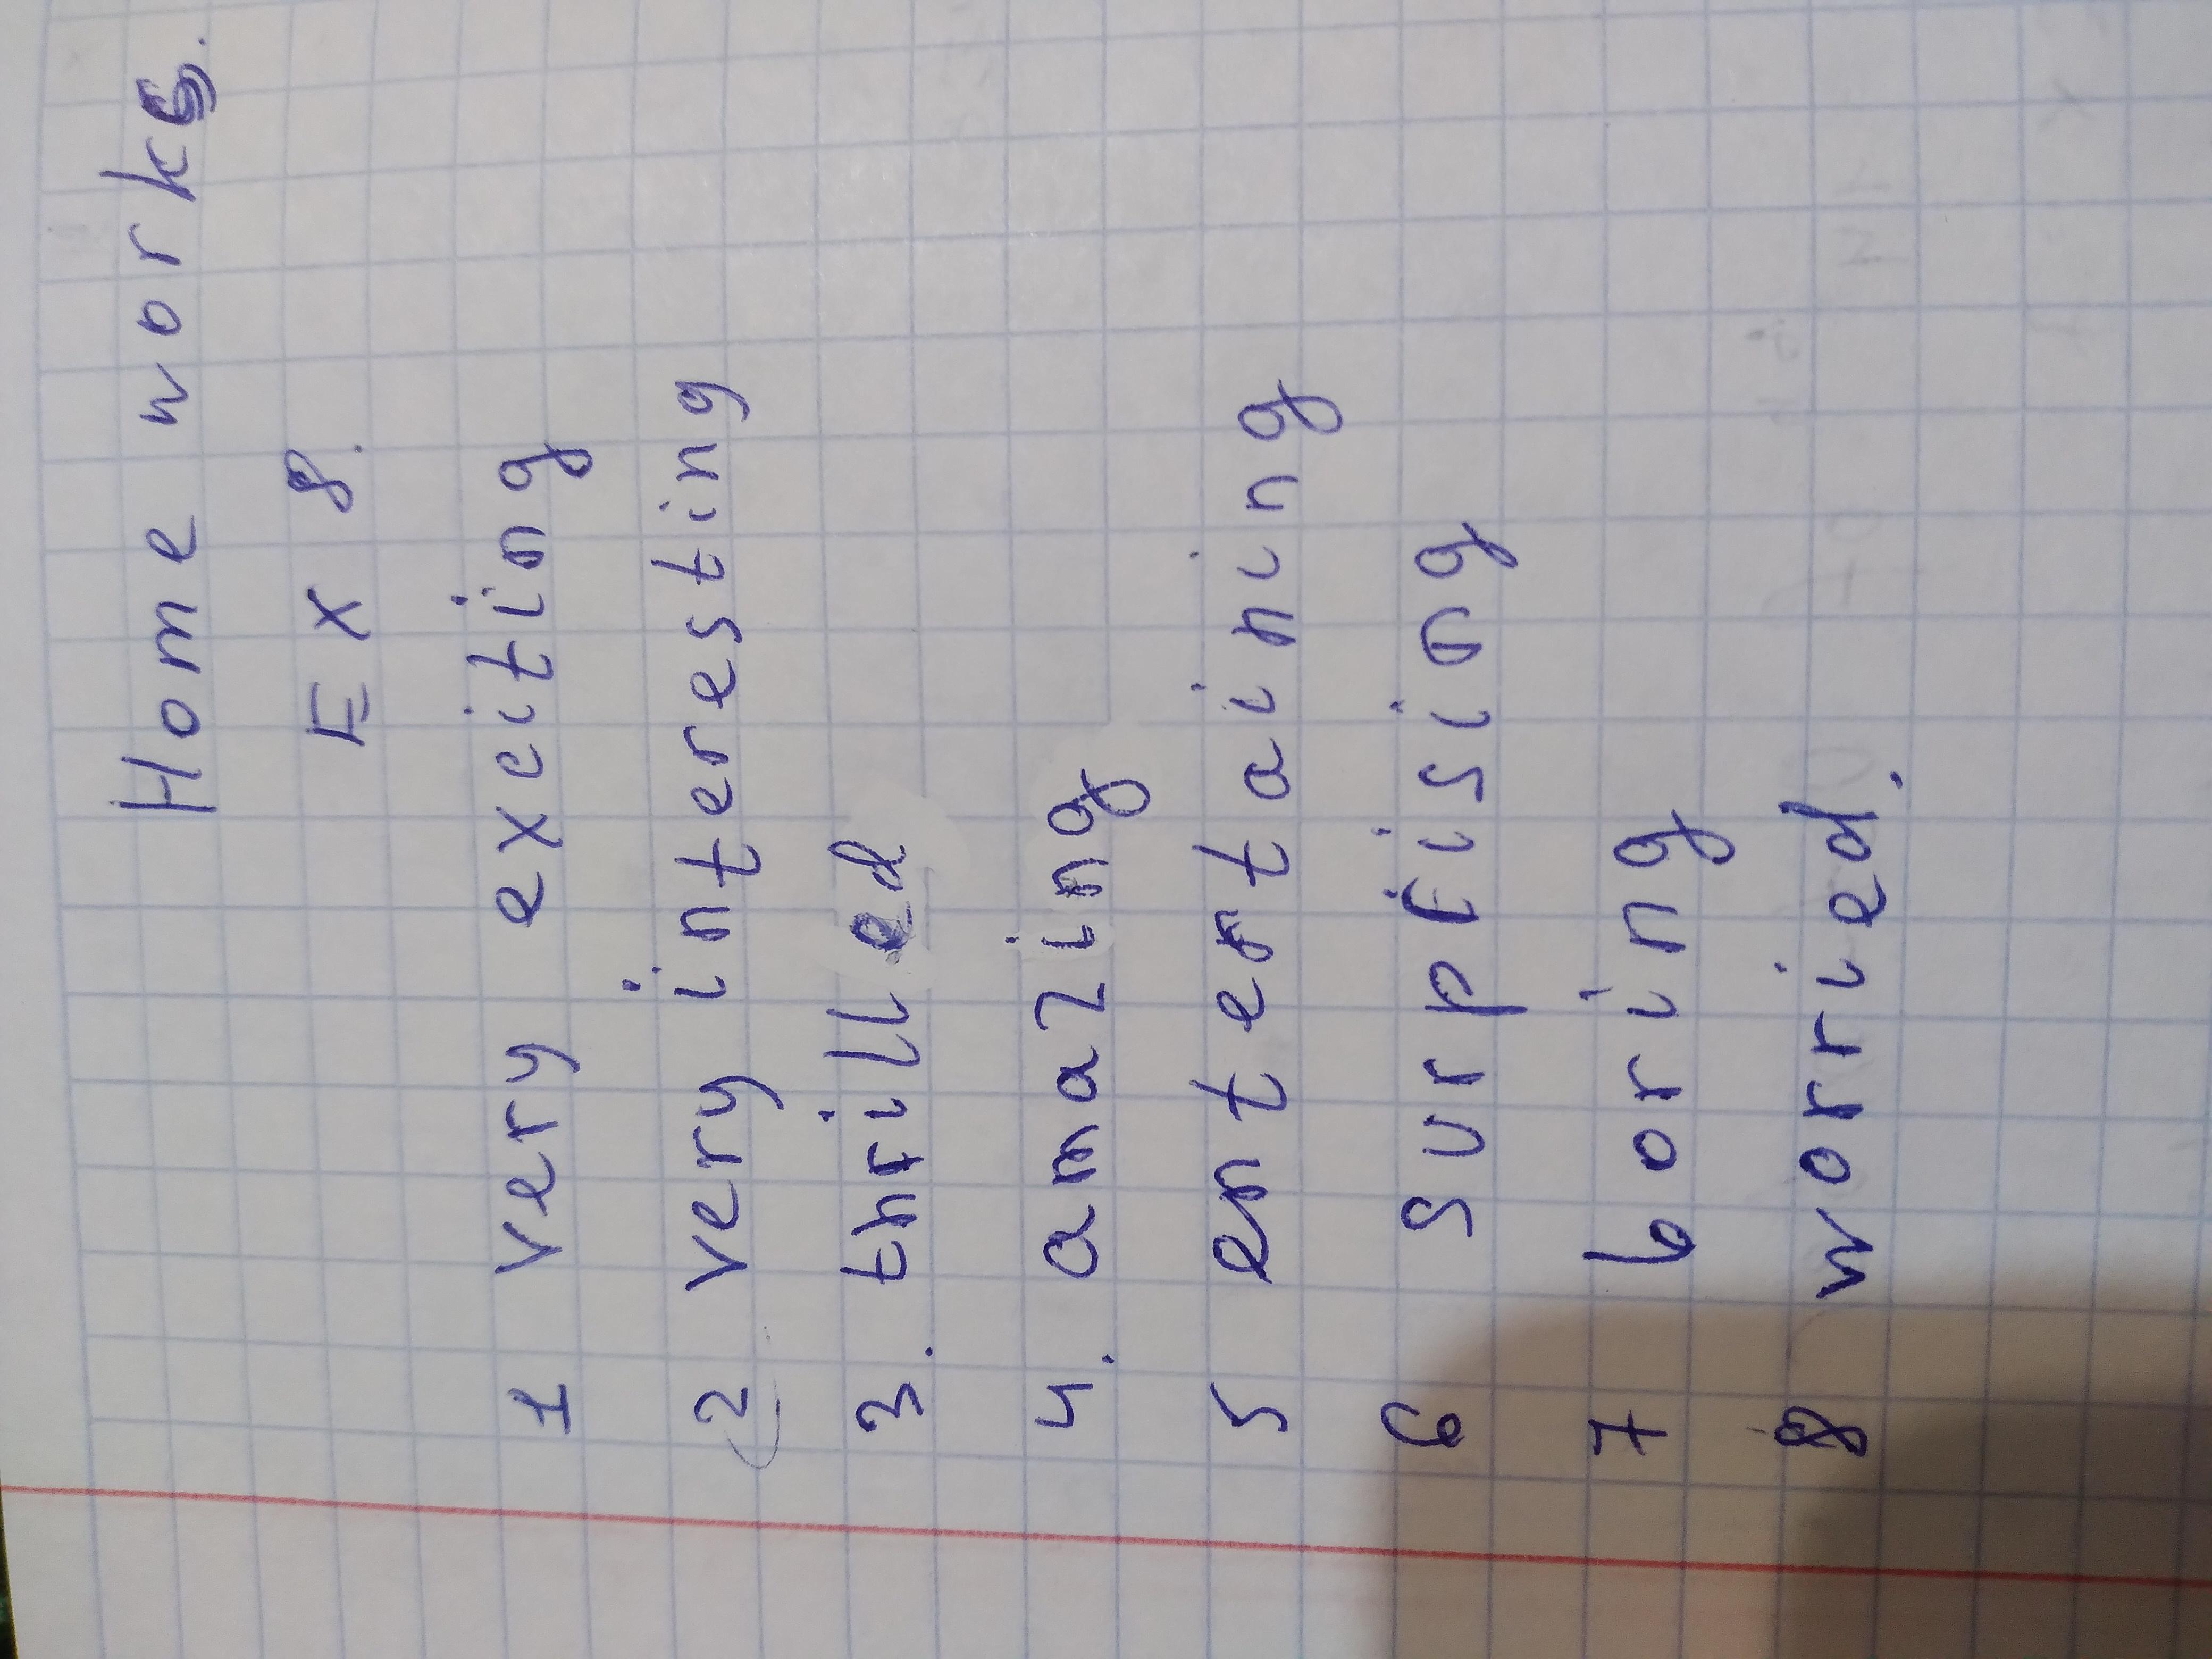 Home works.
Ex 8.
1 very exciting
2 very interesting
3. thrilled
4. amazing
5 entertaining
6 surprising
7 boring
8 worried.